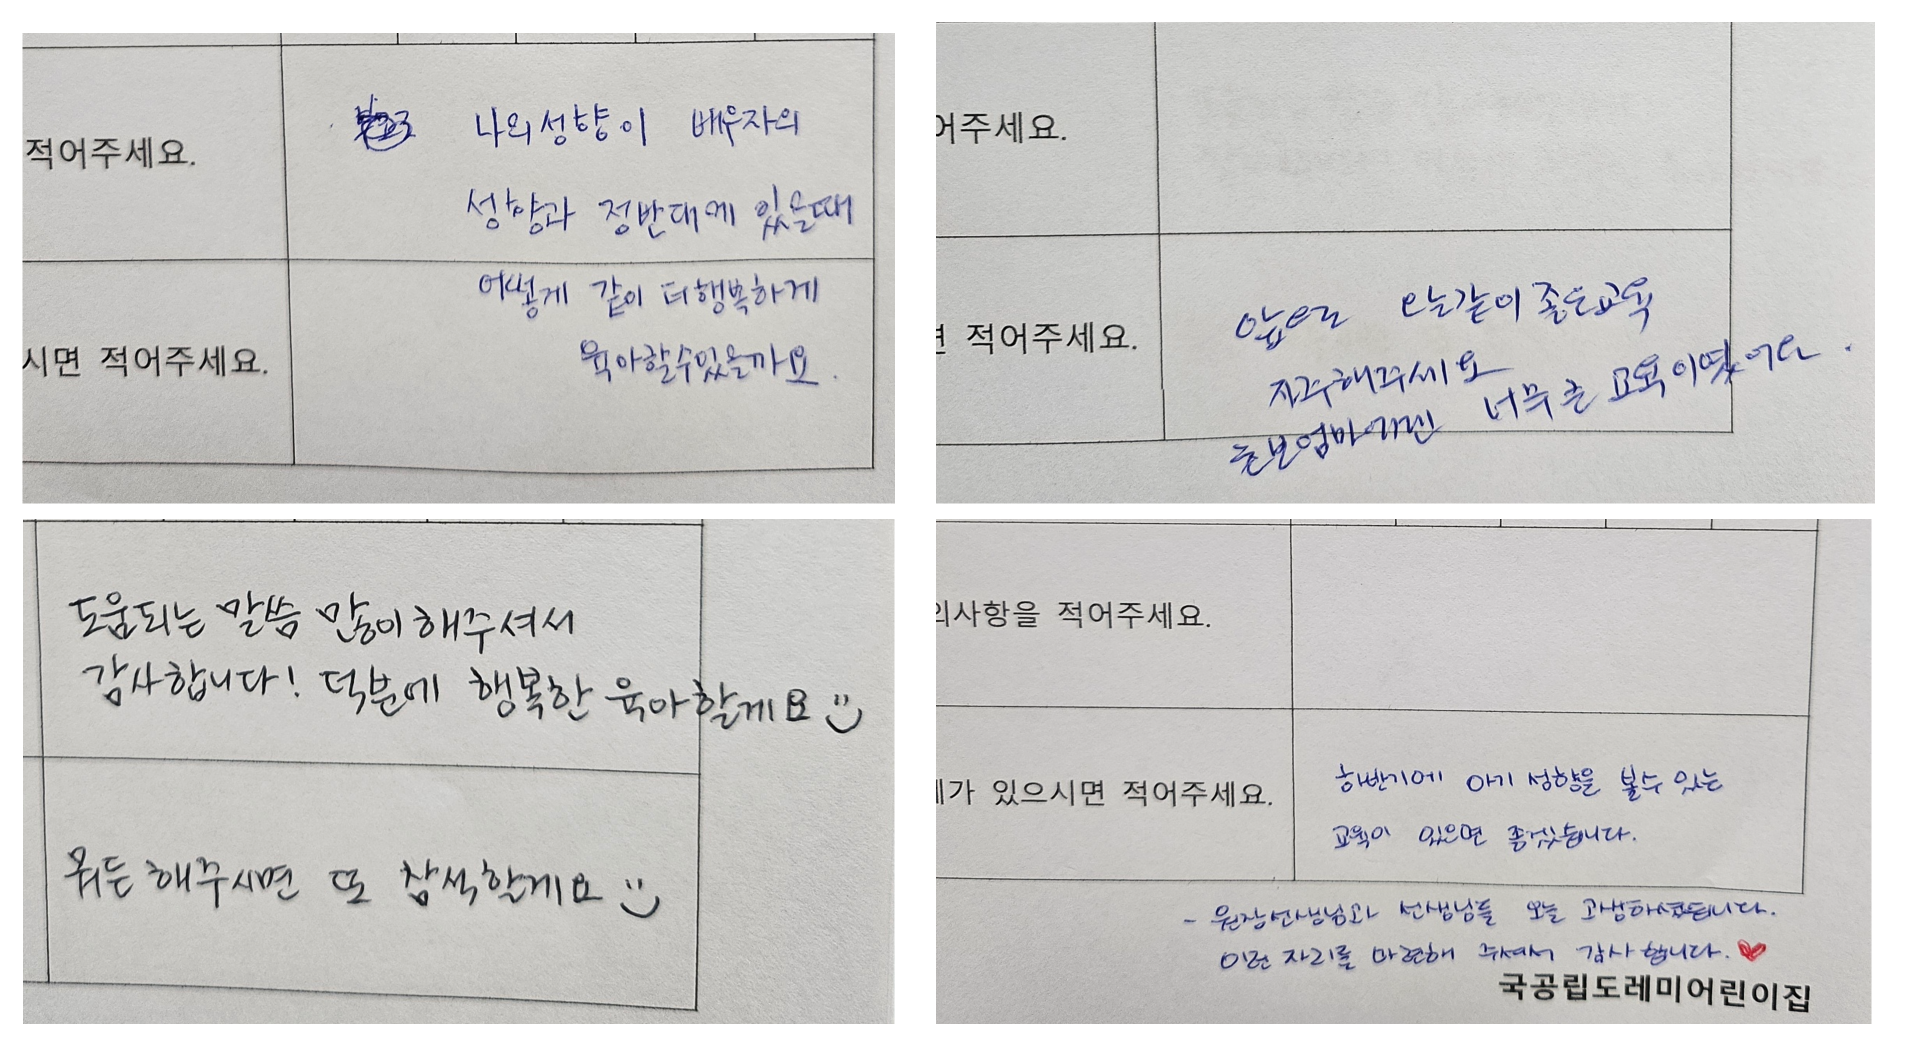 적어주세요.
나의성향이 배우자의
성향과 정반대에 있을때
시면 적어주세요.
어떻게 같이 더행복하게
육아할수있을까요.
어주세요.
적어주세요.
앞으로 오늘같이 좋은교육
자주해주세요
초보엄마에겐 너무 큰 교육이였어요.
도움되는 말씀 많이해주셔서
감사합니다! 덕분에 행복한 육아할게요
뭐든 해주시면 또 참석할게요
의사항을 적어주세요.
제가 있으시면 적어주세요.
하반기에 아기 성향을 볼수 있는
교육이 있으면 좋겠습니다.
- 원장선생님과 선생님들 오늘 고생하셨습니다.
이런 자리를 마련해 주셔서 감사합니다. ♥
국공립도레미어린이집